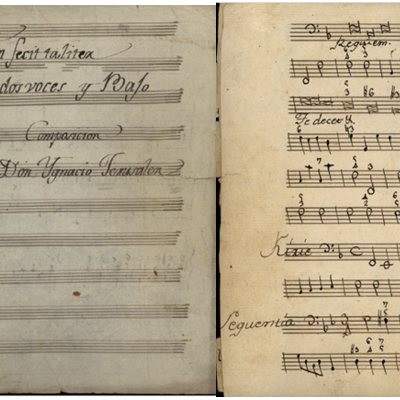 n fecit taliter
dos voces y Bajo
Composicion
Don Ygnacio Jerusalen
Requiem.
Te decet
Kirie
Sequentia